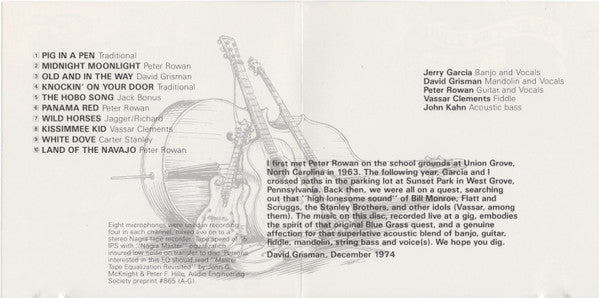 1 PIG IN A PEN Traditional
2 MIDNIGHT MOONLIGHT Peter Rowan
3 OLD AND IN THE WAY David Grisman
4 KNOCKIN' ON YOUR DOOR Traditional
5 THE HOBO SONG Jack Bonus
6 PANAMA RED Peter Rowan
7 WILD HORSES Jagger/Richard
8 KISSIMMEE KID Vassar Clements
9 WHITE DOVE Carter Stanley
10 LAND OF THE NAVAJO Peter Rowan
Eight microphones were used in recording
four in each channel, mixed live on to a
stereo Nagra tape recorder. Tape speed of 15
IPS with "Nagra Master" equalization
insured low noise on transfer to disc. Persons
interested in this EQ should read "Master
Tape Equalization Revisited" by John G.
McKnight & Peter F. Hille, Audio Engineering
Society preprint #865 (A-G).
Jerry Garcia Banjo and Vocals
David Grisman Mandolin and Vocals
Peter Rowan Guitar and Vocals
Vassar Clements Fiddle
John Kahn Acoustic bass
I first met Peter Rowan on the school grounds at Union Grove,
North Carolina in 1963. The following year, Garcia and I
crossed paths in the parking lot at Sunset Park in West Grove,
Pennsylvania. Back then, we were all on a quest, searching
out that "high lonesome sound" of Bill Monroe, Flatt and
Scruggs, the Stanley Brothers, and other idols (Vassar, among
them). The music on this disc, recorded live at a gig, embodies
the spirit of that original Blue Grass quest, and a genuine
affection for that superlative acoustic blend of banjo, guitar,
fiddle, mandolin, string bass and voice(s). We hope you dig.
David Grisman, December 1974